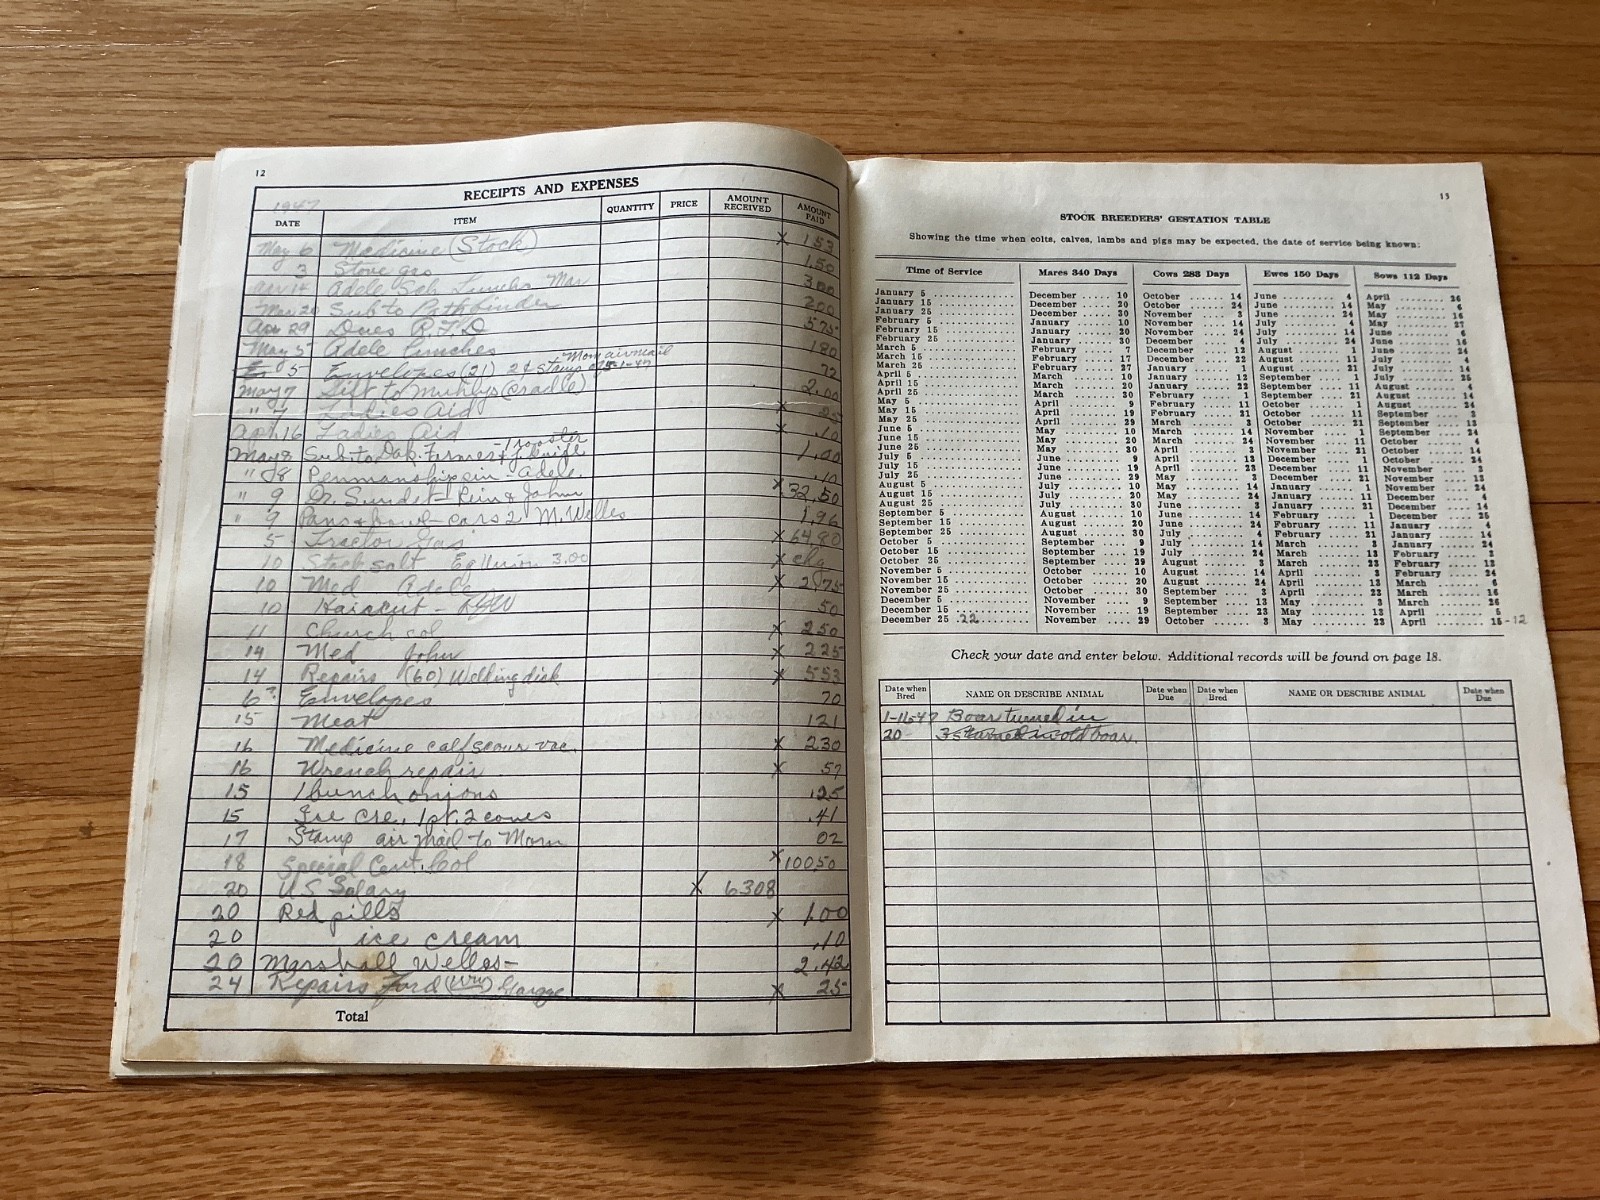 12
RECEIPTS AND EXPENSES
1947
DATE ITEM QUANTITY PRICE AMOUNT RECEIVED AMOUNT PAID
May 6 Medicine (Stock) x 153
3 Stove gas 1.50
Adele Sch Lunches Mar 300
Mar 20 Sub to Pathfinder 200
Apr 29 Dues 575
May 5 Adele lunches 180
Mom air mail
5 Envelopes (21) 2¢ stamp 72
May 7 Gift to (cradle) 2.00
" 7 Ladies Aid x 25
Apr. 16 Ladies Aid x .10
1 rooster
May 8 Sub. to Dak. Farmer + 1.00
" 8 Penmanship Adele .10
" 9 Dr. Sundet - & John x 32.50
" 9 Pans 2 M. Welles 1.96
5 Tractor Gas x 64.80
10 Stock salt Eq Union 3.00 x chg
10 Med Adele x 2.75
10 Haircut - 50
11 Church col x 250
14 Med John x 225
14 Repairs (60) Welding disk x 553
6? Envelopes 70
15 Meat 121
16 Medicine calf scour vac. x 230
16 Wrench repair x 57
15 1 bunch onions .25
15 Ice cre. 1 pt. 2 cones .41
17 Stamp air mail to Mom 02
18 Special Cent. Col x 10050
20 U S Salary x 6308
20 Red pills x 1.00
20 ice cream .10
20 Marshall Welles - 2.42
24 Repairs Ford (Wm) Garage x 25
Total
13
STOCK BREEDERS' GESTATION TABLE
Showing the time when colts, calves, lambs and pigs may be expected, the date of service being known:
Time of Service Mares 340 Days Cows 283 Days Ewes 150 Days Sows 112 Days
January 5 December 10 October 14 June 4 April 26
January 15 December 20 October 24 June 14 May 6
January 25 December 30 November 3 June 24 May 16
February 5 January 10 November 14 July 4 May 27
February 15 January 20 November 24 July 14 June 6
February 25 January 30 December 4 July 24 June 16
March 5 February 7 December 12 August 1 June 24
March 15 February 17 December 22 August 11 July 4
March 25 February 27 January 1 August 21 July 14
April 5 March 10 January 12 September 1 July 25
April 15 March 20 January 22 September 11 August 4
April 25 March 30 February 1 September 21 August 14
May 5 April 9 February 11 October 1 August 24
May 15 April 19 February 21 October 11 September 3
May 25 April 29 March 3 October 21 September 13
June 5 May 10 March 14 November 1 September 24
June 15 May 20 March 24 November 11 October 4
June 25 May 30 April 3 November 21 October 14
July 5 June 9 April 13 December 1 October 24
July 15 June 19 April 23 December 11 November 3
July 25 June 29 May 3 December 21 November 13
August 5 July 10 May 14 January 1 November 24
August 15 July 20 May 24 January 11 December 4
August 25 July 30 June 3 January 21 December 14
September 5 August 10 June 14 February 1 December 25
September 15 August 20 June 24 February 11 January 4
September 25 August 30 July 4 February 21 January 14
October 5 September 9 July 14 March 3 January 24
October 15 September 19 July 24 March 13 February 3
October 25 September 29 August 3 March 23 February 13
November 5 October 10 August 14 April 3 February 24
November 15 October 20 August 24 April 13 March 6
November 25 October 30 September 3 April 23 March 16
December 5 November 9 September 13 May 3 March 26
December 15 November 19 September 23 May 13 April 5
December 25 22 November 29 October 3 May 23 April 15 - 12
Check your date and enter below. Additional records will be found on page 18.
Date when Bred NAME OR DESCRIBE ANIMAL Date when Due Date when Bred NAME OR DESCRIBE ANIMAL Date when Due
1-16-47 Boar turned in
20 3 s turned in old boar.